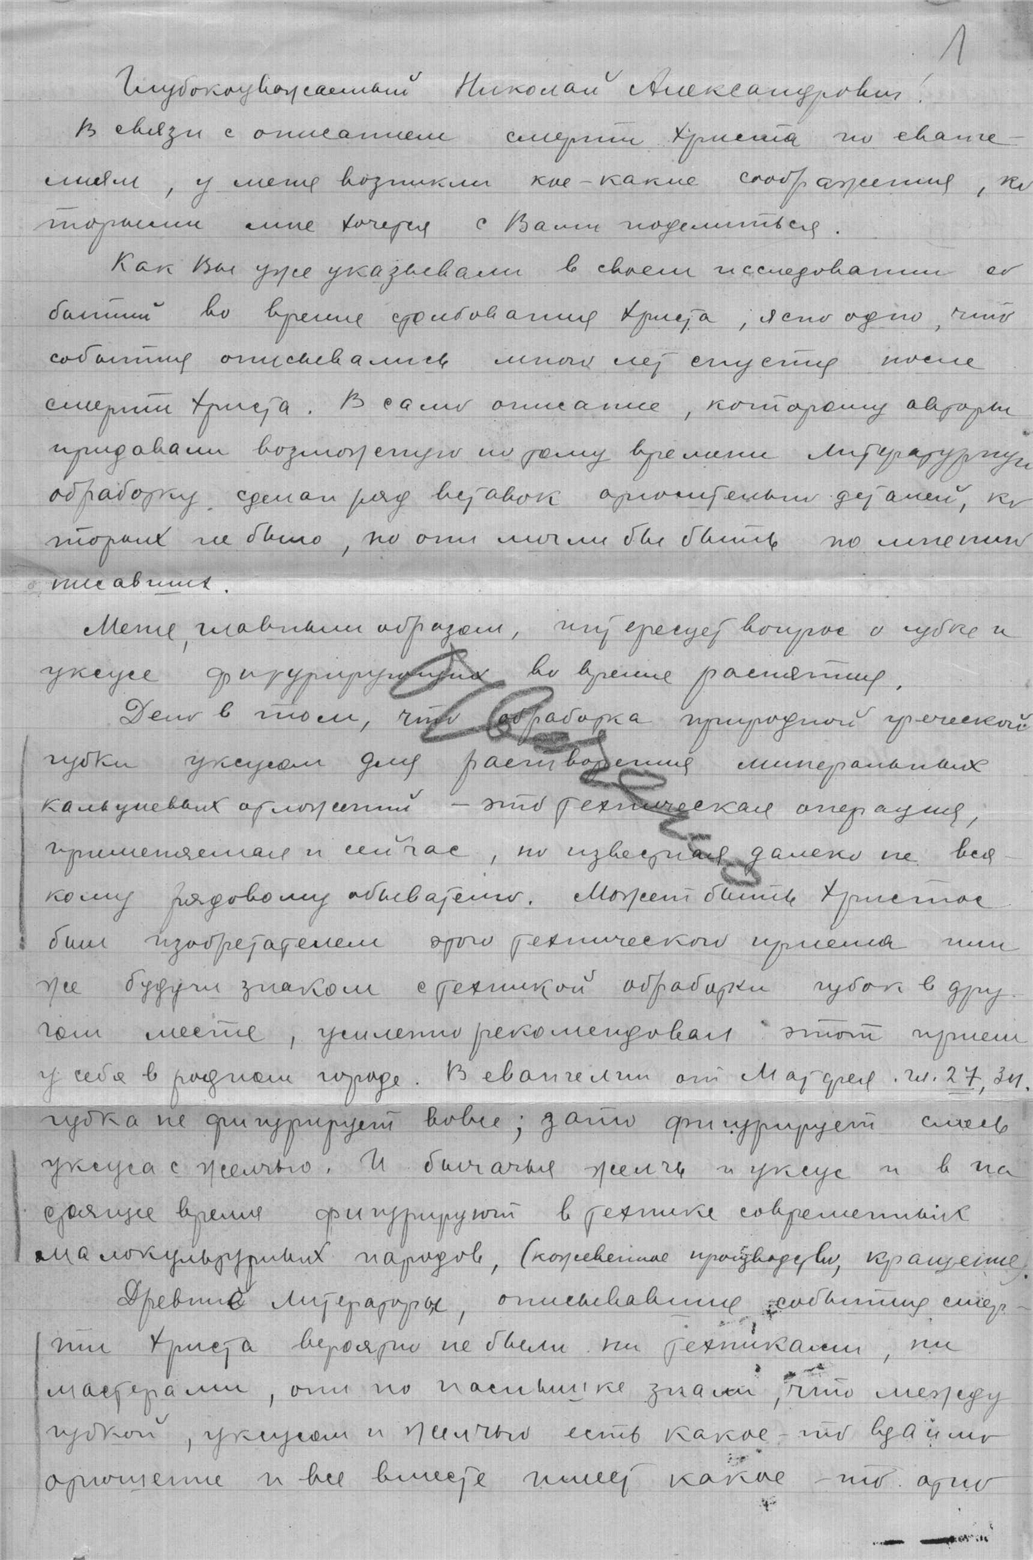 1
Глубокоуважаемый Николай Александрович!
В связи с описанием смерти Христа по еванге-
лиям, у меня возникли кое-какие соображения, ко
торыми мне хочется с Вами поделиться.
Как Вы уже указывали в своем исследовании со
бытий во время столбования Христа, ясно одно, что
события описывались много лет спустя после
смерти Христа. В само описание, которому авторы
придавали возможную по тому времени литературную
обработку, сделан ряд вставок относительно деталей, ко
торых не было, но они могли бы быть по мнению
писавших.
Меня, главным образом, интересует вопрос о губке и
уксусе фигурирующих во время распятия.
Дело в том, что обработка природной греческой
губки уксусом для растворения минеральных
кальциевых отложений – это техническая операция,
применяемая и сейчас, но известная далеко не вся-
кому рядовому обывателю. Может быть Христос
был изобретателем этого технического приема или
же будучи знаком с техникой обработки губок в дру
гом месте, усиленно рекомендовал этот прием
у себя в родном городе. В евангелии от Матфея. гл. 27, 34.
губка не фигурирует вовсе; зато фигурирует смесь
уксуса с желчью. И бычачья желчь и уксус и в на
стоящее время фигурируют в технике современных
малокультурных народов, (кожевенное производство, крашение).
Древние литераторы, описывавшие события смер-
ти Христа вероятно не были ни техниками, ни
мастерами, они по наслышке знали, что между
губкой, уксусом и желчью есть какое-то взаимо
отношение и все вместе имеет какое-то отно